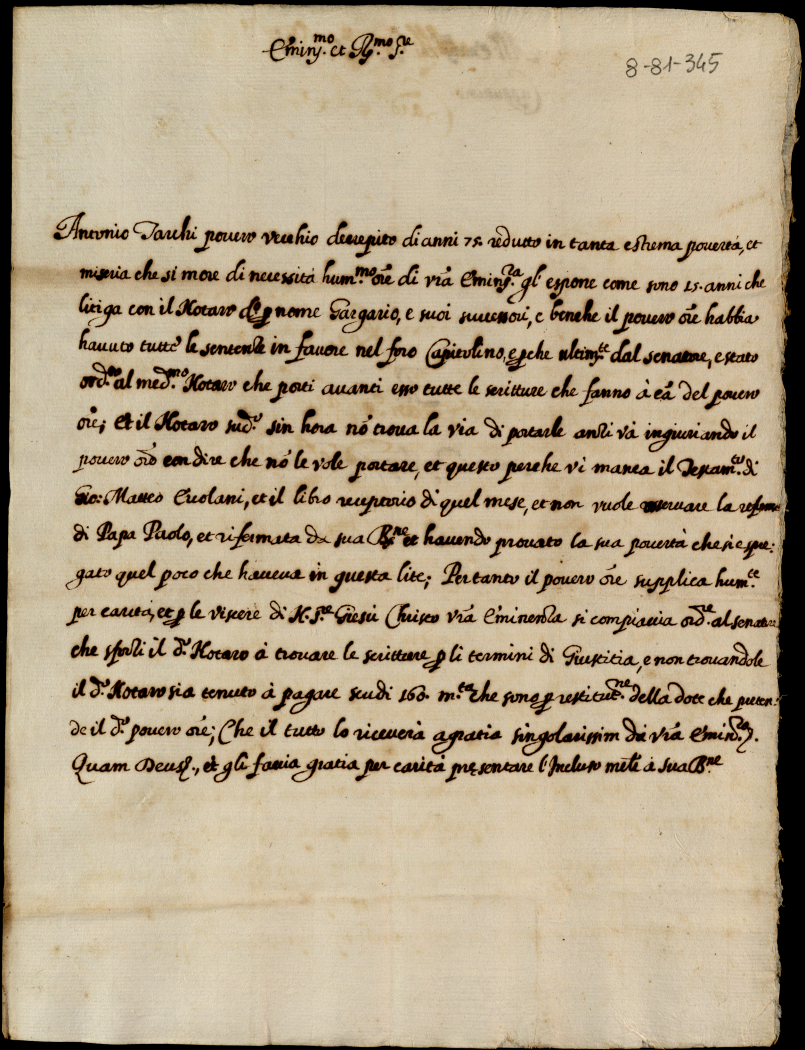 Emin.mo et R.mo S.re
8-81-345
Antonio Tarchi povero vechio decrepito di anni 75. redutto in tanta estrema povertà, et
miseria che si more di necessità hum.mo ore di vra Emin.za gl' espone come sono 15. anni che
litiga con il Notaro p nome Gargario, e suoi successori, e benche il povero ore habbia
havuto tutte le sentenze in favore nel foro Capitolino, e perche ultim.te dal senatore, e stato
ord.to al med.mo Notaro che porti avanti esso tutte le scritture che fanno à ca del povero
ore; Et il Notaro sud.o sin hora nō trova la via di portarle anzi và ingiuriando il
povero ore con dire che nō le vole portare, et questo perche vi manca il Testam.to di
Gio: Matteo Ercolani, et il libro receptorio di quel mese, et non vuole osservare la reforma
di Papa Paolo, et rifermata da sua B.ne et havendo provato la sua povertà che si è spre:
gato quel poco che haveva in questa lite; Pertanto il povero ore supplica hum.te
per carità, et p le viscere di N. S.re Giesù Christo vra Eminenza si compiaccia ord.re al senatore
che sforzi il d.o Notaro à trovare le scritture p li termini di Giustitia, e non trovandole
il d.o Notaro sia tenuto à pagare scudi 160. m.ta che sono p restitut.ne della dote che preten:
de il d.o povero ore; Che il tutto lo riceverà a gratia singolarissim da vra Emin.za
Quam Deus, et gli faccia gratia per carità presentare l'Incluso mlē à sua B.ne